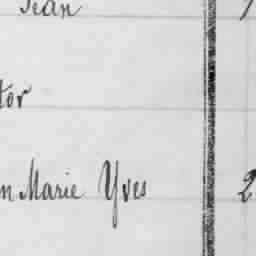 Jean
tor
n Marie Yves 2